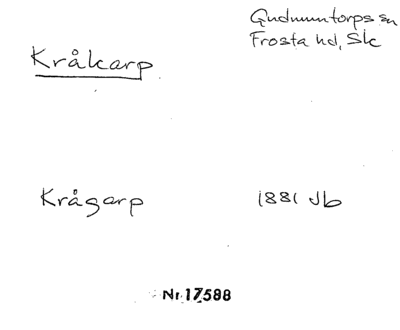 Gudmuntorps sn
Frosta hd, Skc
Kråkarp
Krågarp
1881 Jb
Nr 17588